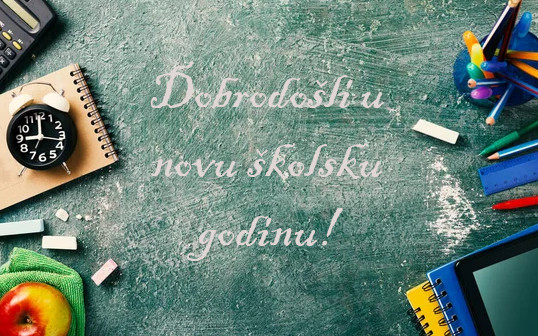 Dobrodošli u
novu školsku
godinu!